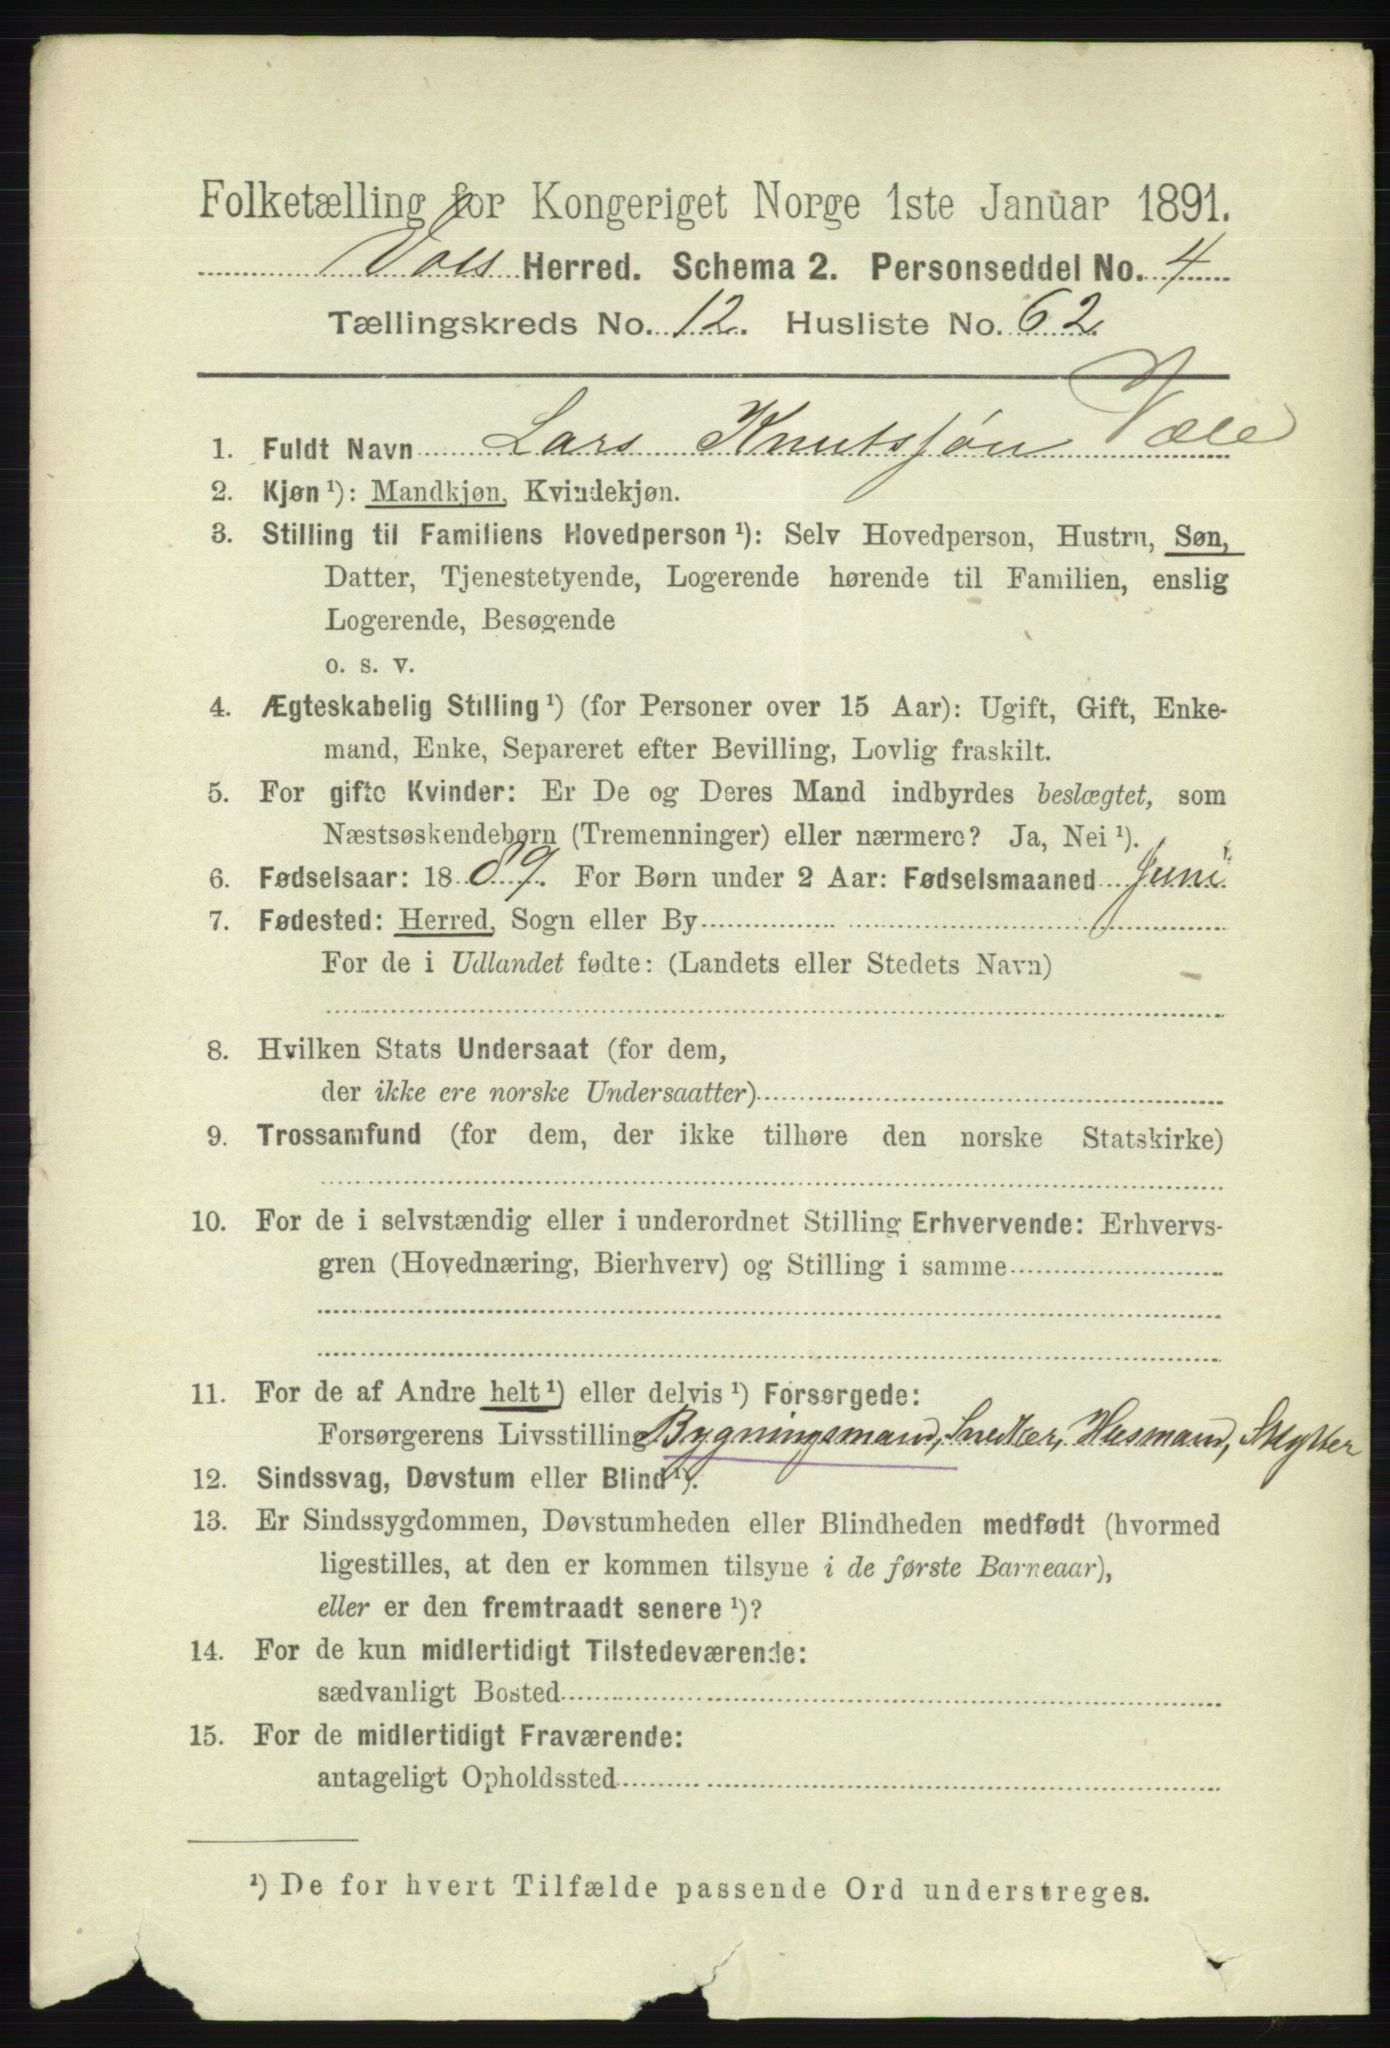 Folketælling for Kongeriget Norge 1ste Januar 1891.
Voss Herred. Schema 2. Personseddel No. 4
Tællingskreds No. 12. Husliste No. 62.
1. Fuldt Navn Lars Knutsjøn Væle
2. Kjøn ¹): Mandkjøn, Kvindekjøn.
3. Stilling til Familiens Hovedperson ¹): Selv Hovedperson, Hustru, Søn,
Datter, Tjenestetyende, Logerende hørende til Familien, enslig
Logerende, Besøgende
o. s. v.
4. Ægteskabelig Stilling ¹) (for Personer over 15 Aar): Ugift, Gift, Enke-
mand, Enke, Separeret efter Bevilling, Lovlig fraskilt.
5. For gifte Kvinder: Er De og Deres Mand indbyrdes beslægtet, som
Næstsøskendebørn (Tremenninger) eller nærmere? Ja, Nei ¹).
6. Fødselsaar: 1889. For Børn under 2 Aar: Fødselsmaaned Juni
7. Fødested: Herred, Sogn eller By
For de i Udlandet fødte: (Landets eller Stedets Navn)
8. Hvilken Stats Undersaat (for dem,
der ikke ere norske Undersaatter)
9. Trossamfund (for dem, der ikke tilhøre den norske Statskirke)
10. For de i selvstændig eller i underordnet Stilling Erhvervende: Erhvervs-
gren (Hovednæring, Bierhverv) og Stilling i samme
11. For de af Andre helt ¹) eller delvis ¹) Forsørgede:
Forsørgerens Livsstilling Bygningsmand, Snedker, Husmand, Skytter
12. Sindssvag, Døvstum eller Blind ¹).
13. Er Sindssygdommen, Døvstumheden eller Blindheden medfødt (hvormed
ligestilles, at den er kommen tilsyne i de første Barneaar),
eller er den fremtraadt senere ¹)?
14. For de kun midlertidigt Tilstedeværende:
sædvanligt Bosted
15. For de midlertidigt Fraværende:
antageligt Opholdssted
¹) De for hvert Tilfælde passende Ord understreges.